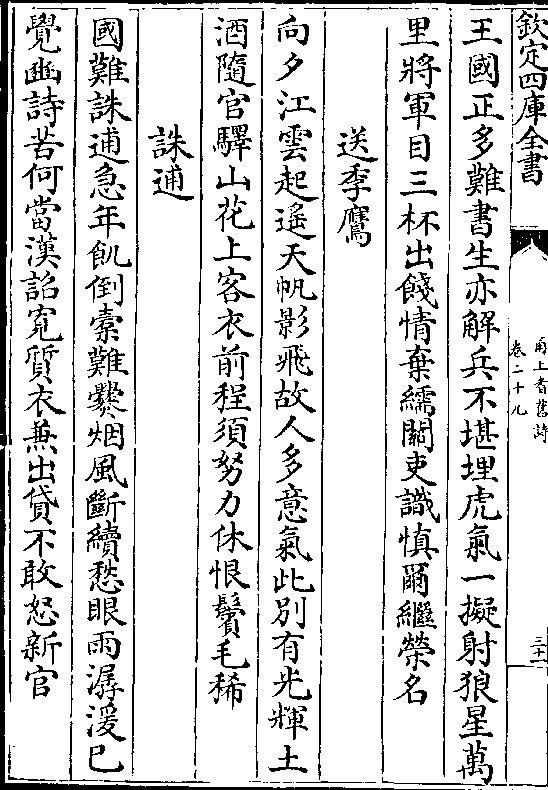 欽定四庫全書
甬上耆舊詩
卷二十九
三十一
王國正多難書生亦解兵不堪埋虎氣一擬射狼星萬
里將軍目三杯出餞情棄繻關吏識慎爾繼榮名
送季鷹
向夕江雲起遙天帆影飛故人多意氣此別有光輝土
酒隨官驛山花上客衣前程須努力休恨鬢毛稀
誅逋
國難誅逋急年飢倒橐難爨烟風斷續愁眼雨潺湲已
覺豳詩苦何當漢詔寛質衣兼出貸不敢怒新官